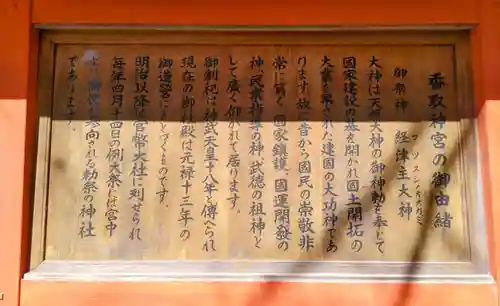 香取神宮の御由緒
御祭神 経津主大神
フツヌシノオオカミ
大神は天照大神の御神勅を奉じて
国家建設の基を開かれ国土開拓の
大業を果された建国の大功神であ
ります故に昔から国民の崇敬非
常に篤く国家鎮護、国運開発の
神、民業指導の神、武徳の祖神と
して広く仰がれて居ります。
御創祀は神武天皇十八年と傳へられ
現在の御社殿は元禄十三年の
御造営にかゝるものです。
明治以降は官幣大社に列せられ
毎年四月十四日の例大祭には宮中
より御使が参向される勅祭の神社
であります。